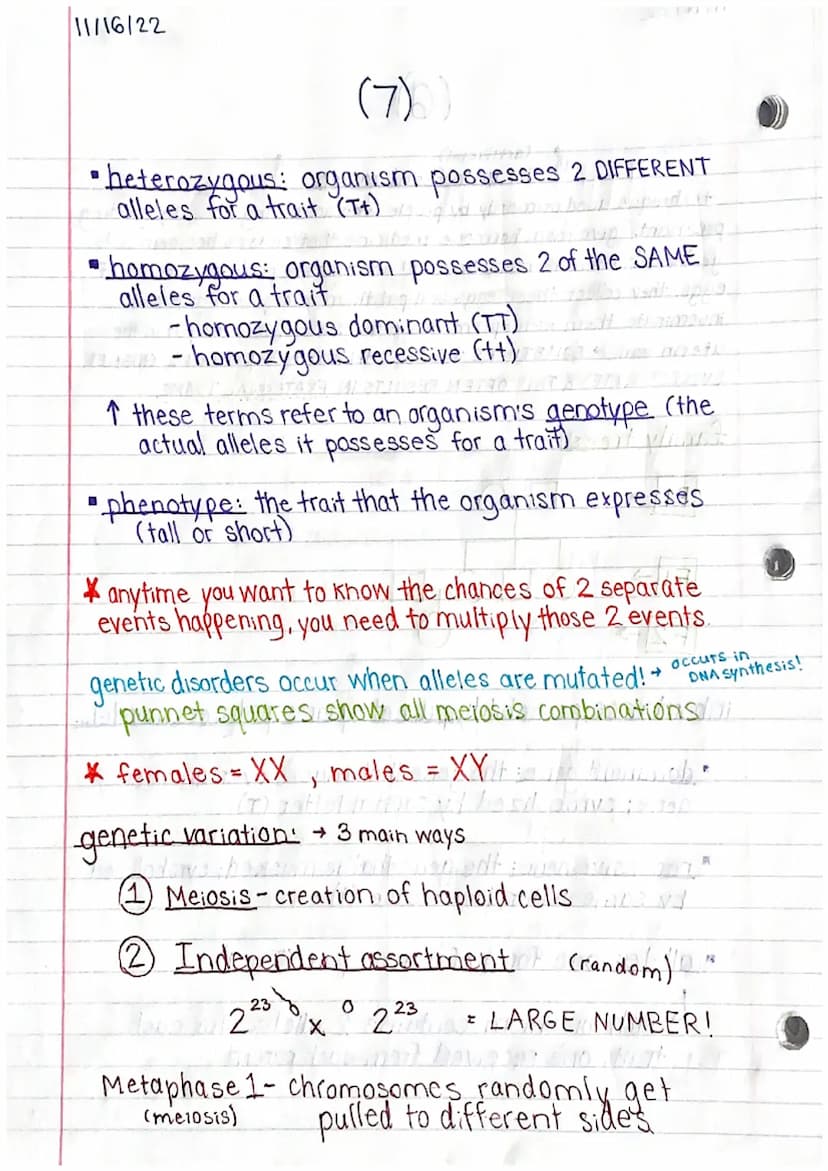 11/16/22
(7)
▪ heterozygous: organism possesses 2 DIFFERENT
alleles for a trait (Tt)
▪ homozygous: organism possesses 2 of the SAME
alleles for a trait
- homozygous dominant (TT)
- homozygous recessive (tt)
↑ these terms refer to an organism's genotype (the
actual alleles it possesses for a trait)
▪ phenotype: the trait that the organism expresses
(tall or short)
* anytime you want to know the chances of 2 separate
events happening, you need to multiply those 2 events.
genetic disorders occur when alleles are mutated! → occurs in
DNA synthesis!
punnet squares show all meiosis combinations
* females = XX , males = XY
genetic variation: → 3 main ways
① Meiosis - creation of haploid cells
② Independent assortment (random)
2²³ ♂ x ♀ 2²³ = LARGE NUMBER!
Metaphase 1 - chromosomes randomly get
(meiosis) pulled to different sides